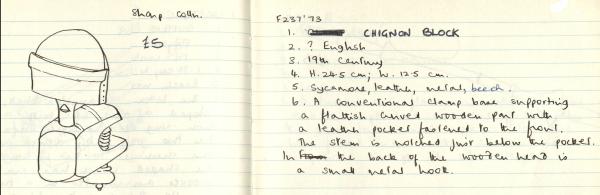 Sharp colln.
£5
F237'73
1. CHIGNON BLOCK
2. ? English
3. 19th Century
4. H. 24.5 cm; W. 12.5 cm.
5. Sycamore, leather, metal, beech.
6. A conventional clamp base supporting
a flattish curved wooden part with
a leather pocket fastened to the front.
The stem is notched just below the pocket.
In the back of the wooden head is
a small metal hook.